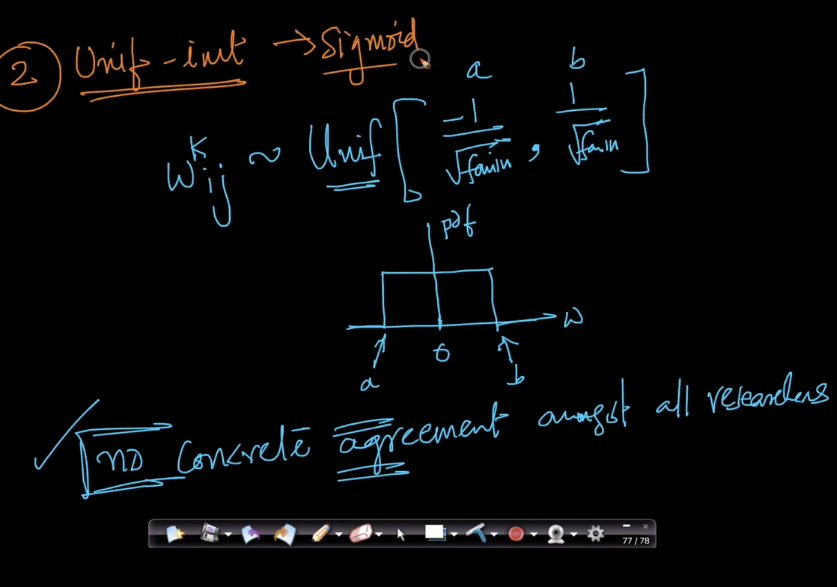 2. Unif-init → Sigmoid
a b
w^k_ij ~ Unif [ -1/√fanin , 1/√fanin ]
pdf
w
0
a b
no concrete agreement amongst all researchers
77 / 78